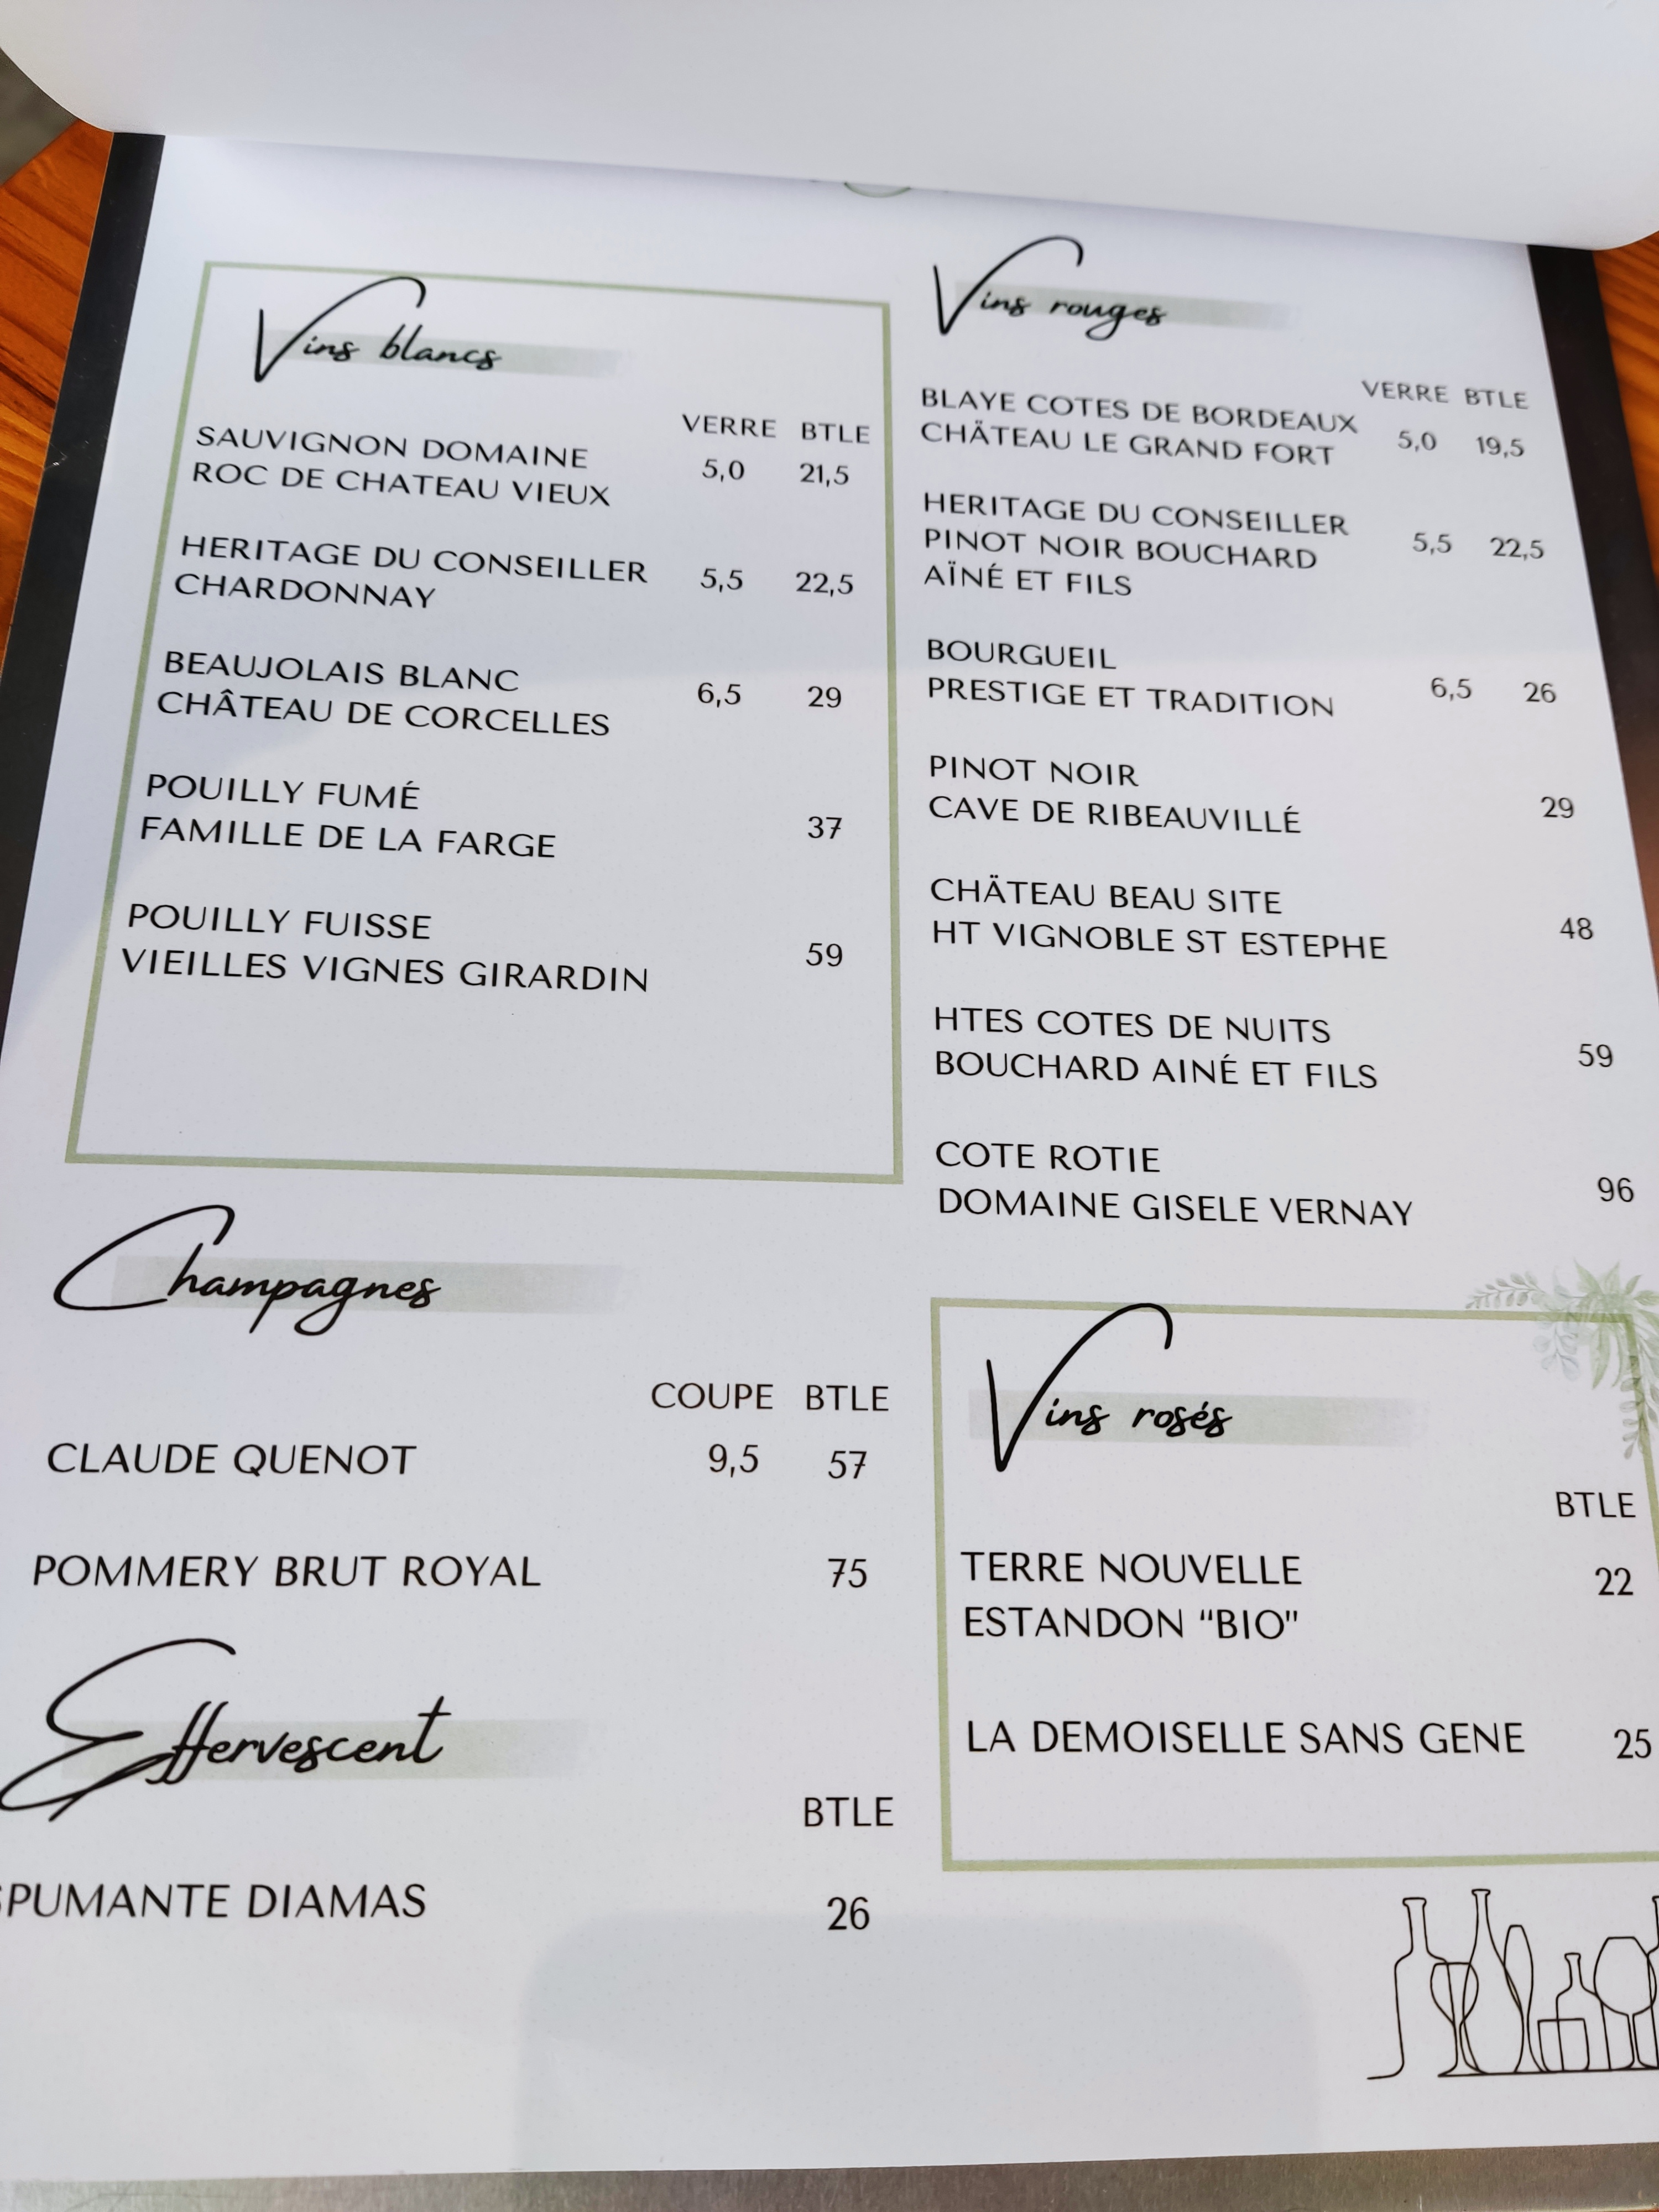 Vins blancs
VERRE BTLE
SAUVIGNON DOMAINE
ROC DE CHATEAU VIEUX
5,0 21,5
HERITAGE DU CONSEILLER
CHARDONNAY
5,5 22,5
BEAUJOLAIS BLANC
CHÂTEAU DE CORCELLES
6,5 29
POUILLY FUMÉ
FAMILLE DE LA FARGE
37
POUILLY FUISSE
VIEILLES VIGNES GIRARDIN
59
Vins rouges
VERRE BTLE
BLAYE COTES DE BORDEAUX
CHÄTEAU LE GRAND FORT
5,0 19,5
HERITAGE DU CONSEILLER
PINOT NOIR BOUCHARD
AÏNÉ ET FILS
5,5 22,5
BOURGUEIL
PRESTIGE ET TRADITION
6,5 26
PINOT NOIR
CAVE DE RIBEAUVILLÉ
29
CHÄTEAU BEAU SITE
HT VIGNOBLE ST ESTEPHE
48
HTES COTES DE NUITS
BOUCHARD AINÉ ET FILS
59
COTE ROTIE
DOMAINE GISELE VERNAY
96
Champagnes
COUPE BTLE
CLAUDE QUENOT 9,5 57
POMMERY BRUT ROYAL 75
Effervescent
BTLE
SPUMANTE DIAMAS 26
Vins rosés
BTLE
TERRE NOUVELLE
ESTANDON “BIO”
22
LA DEMOISELLE SANS GENE 25